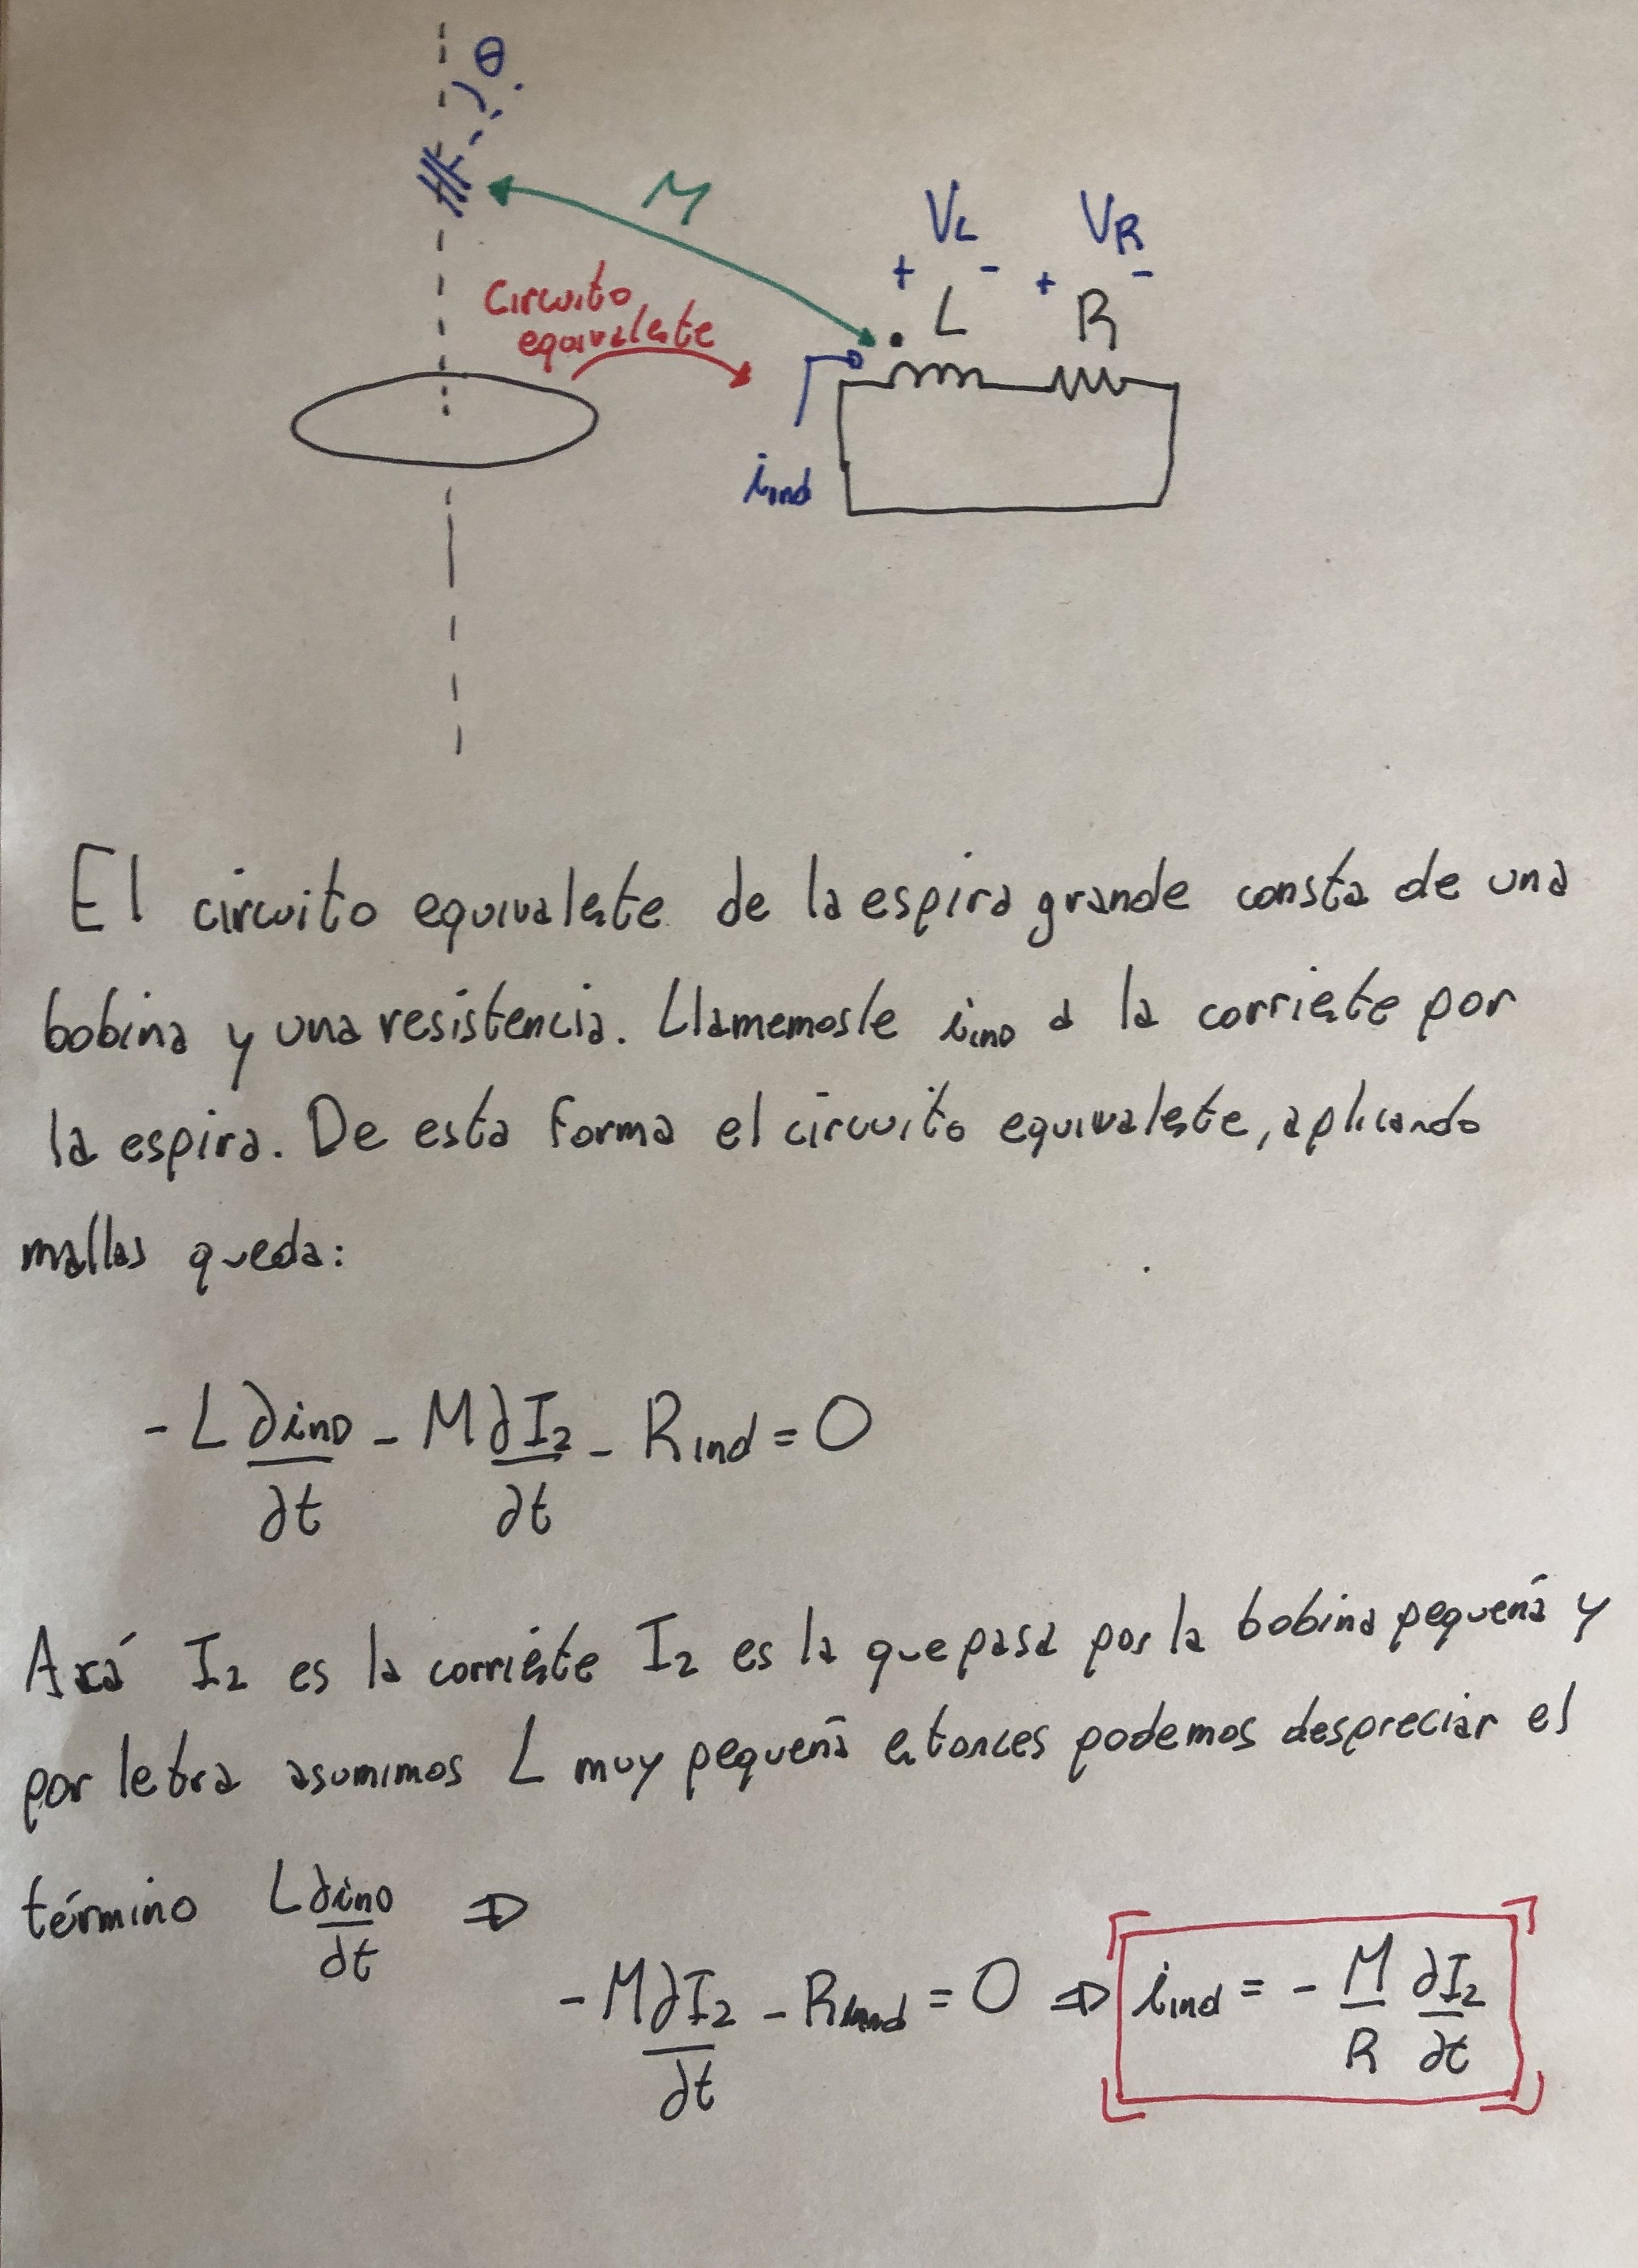 θ
M
V_L V_R
+ - + -
L R
Circuito
equivalente
i_ind
El circuito equivalente de la espira grande consta de una
bobina y una resistencia. Llamemosle i_ind a la corriente por
la espira. De esta forma el circuito equivalente, aplicando
mallas queda:
- L ∂i_ind/∂t - M ∂I_2/∂t - R_ind = 0
Acá I_2 es la corriente I_2 es la que pasa por la bobina pequeña y
por letra asumimos L muy pequeña entonces podemos despreciar el
término L ∂i_ind/∂t ⇒
- M ∂I_2/∂t - R i_ind = 0 ⇒ i_ind = - M/R ∂I_2/∂t